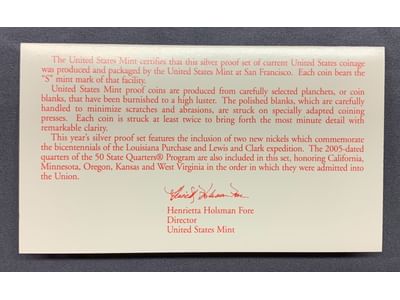 The United States Mint certifies that this silver proof set of current United States coinage
was produced and packaged by the United States Mint at San Francisco. Each coin bears the
"S" mint mark of that facility.
United States Mint proof coins are produced from carefully selected planchets, or coin
blanks, that have been burnished to a high luster. The polished blanks, which are carefully
handled to minimize scratches and abrasions, are struck on specially adapted coining
presses. Each coin is struck at least twice to bring forth the most minute detail with
remarkable clarity.
This year's silver proof set features the inclusion of two new nickels which commemorate
the bicentennials of the Louisiana Purchase and Lewis and Clark expedition. The 2005-dated
quarters of the 50 State Quarters® Program are also included in this set, honoring California,
Minnesota, Oregon, Kansas and West Virginia in the order in which they were admitted into
the Union.
Henrietta Holsman Fore
Director
United States Mint